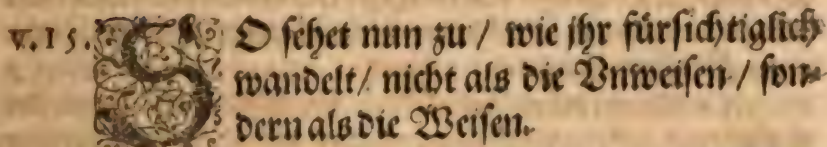 v.15. SO sehet nun zu / wie jhr fürsichtiglich
wandelt / nicht als die Vnweisen / son-
dern als die Weisen.